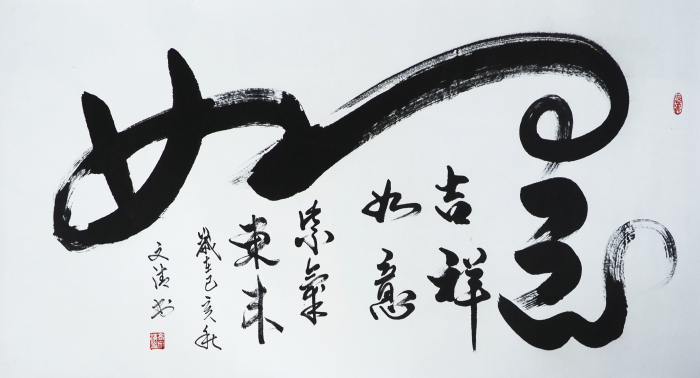 如意
吉祥
如意
紫氣
東来
歲在己亥秋
文清书